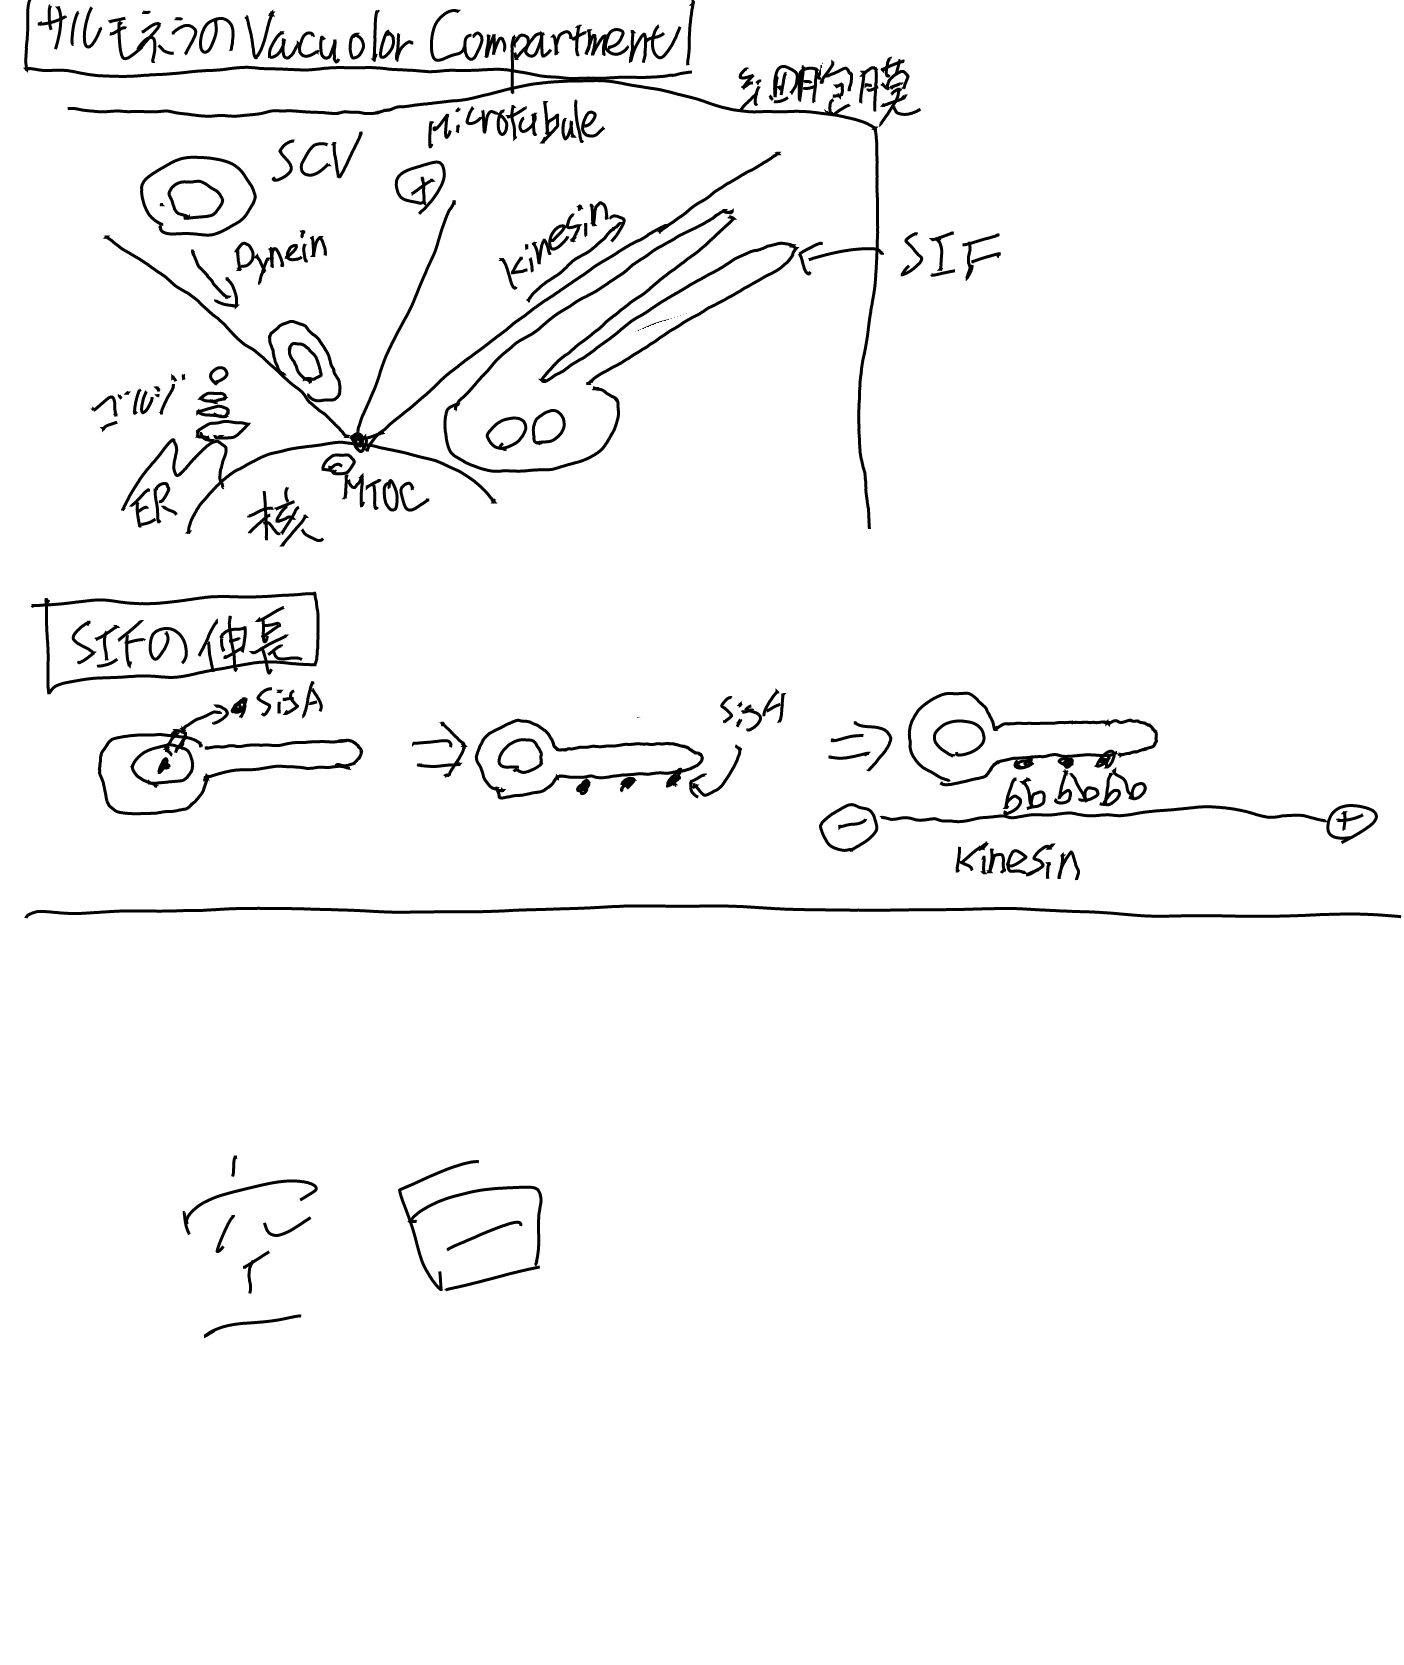 サルモネラのVacuolor Compartment
細胞膜
Microtubule
SCV
+
Kinesin
Dynein
SIF
ゴルジ
MTOC
ER
核
SIFの伸長
SisA
SisA
- +
Kinesin
空白